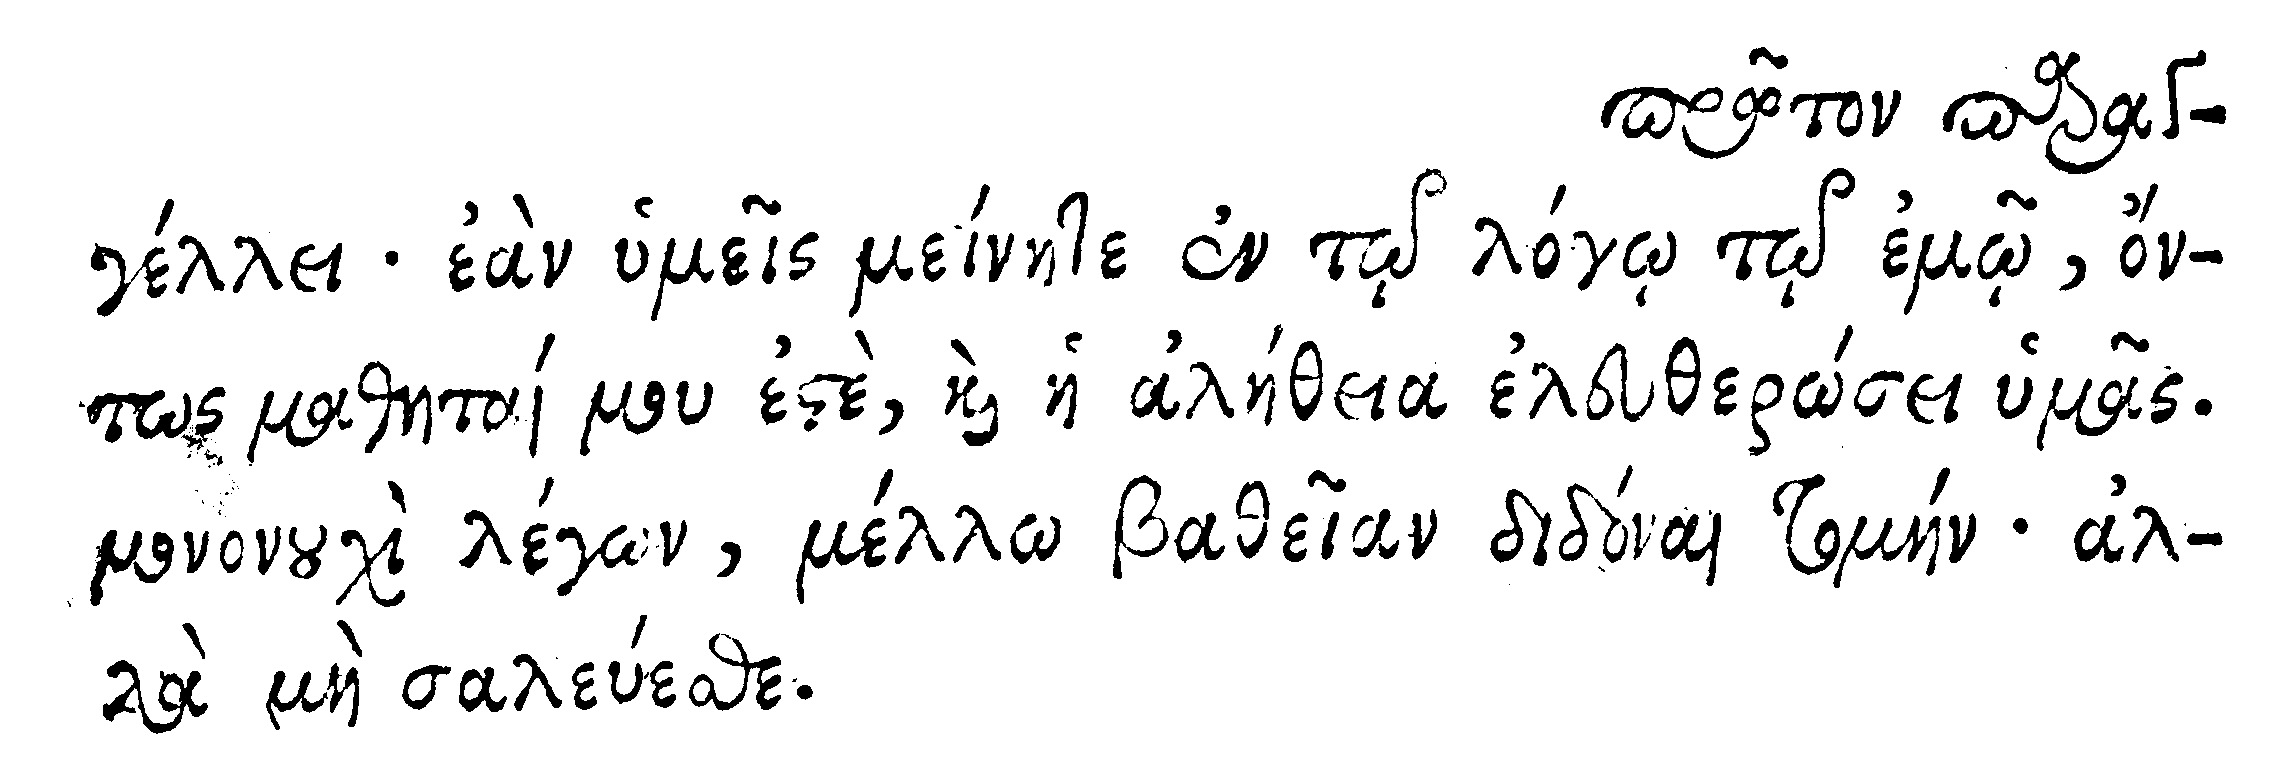 πρῶτον παραγ-
γέλλει · ἐὰν ὑμεῖς μείνητε ἐν τῷ λόγῳ τῷ ἐμῷ, ὄν-
τως μαθηταί μου ἐστὲ, καὶ ἡ ἀλήθεια ἐλευθερώσει ὑμᾶς.
μονονουχὶ λέγων, μέλλω βαθεῖαν διδόναι τομήν · ἀλ-
λὰ μὴ σαλεύεσθε.